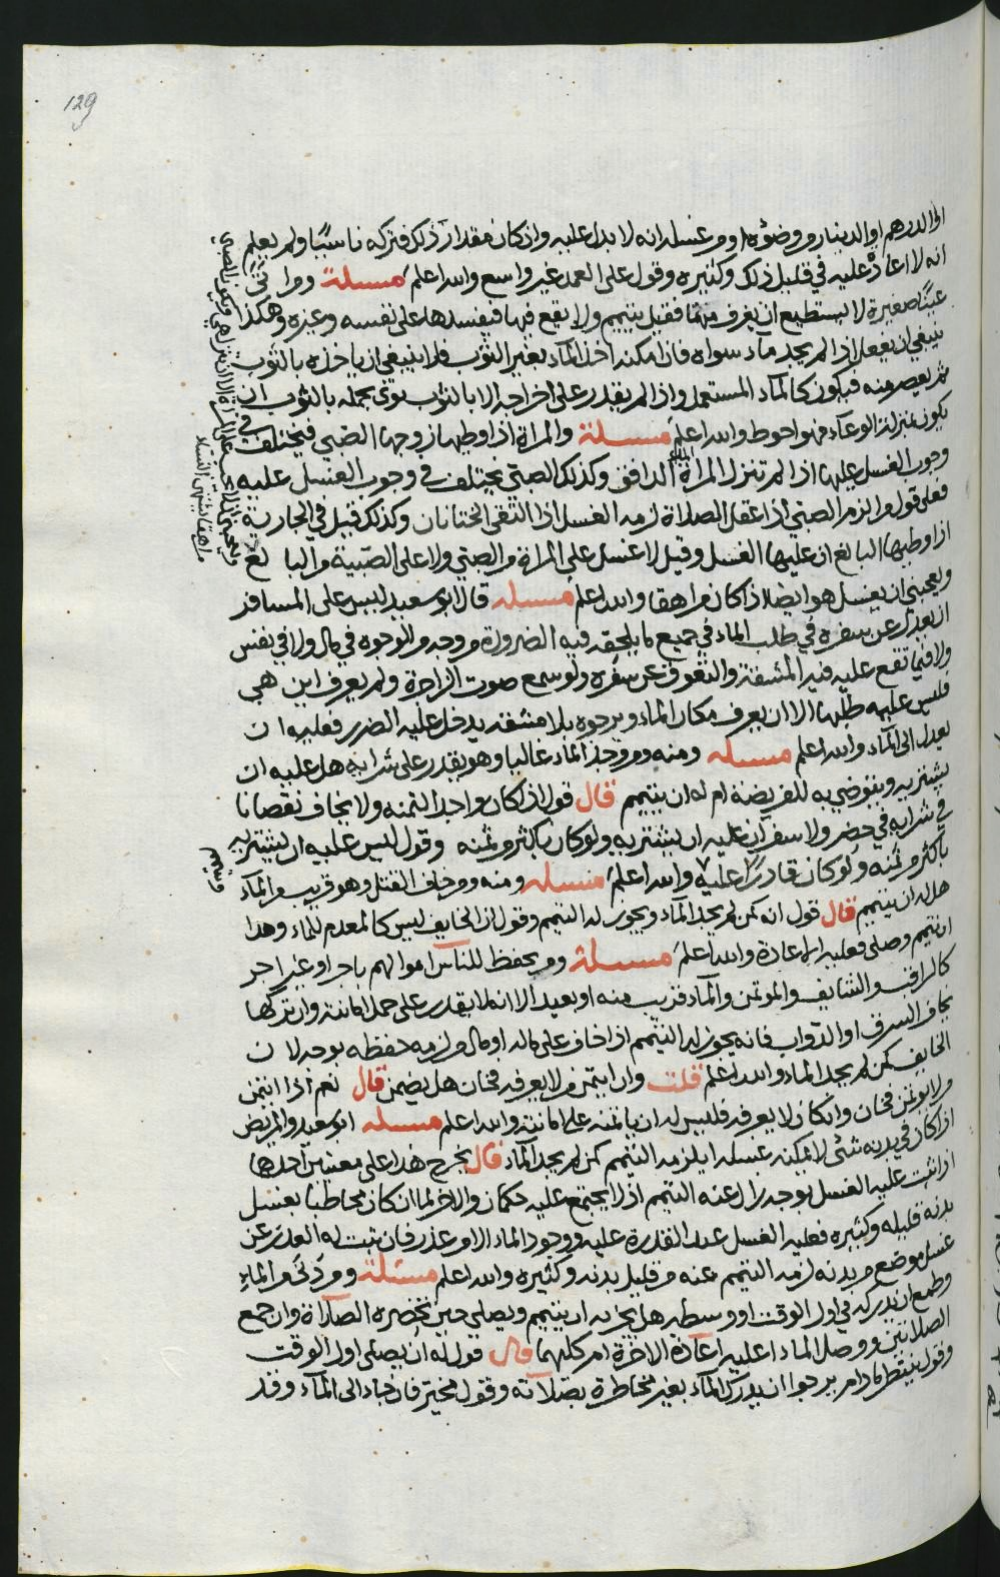 129
او الدرهم او الدينار من وضوءه او من غسله انه لا بدل عليه واذ كان مقدار ذلك فتركه ناسيا ولم يعلم
انه لا اعادة عليه في قليل ذلك وكثيره وقول على العمد غير واسع والله اعلم مسئلة ومن اتى
عينا صغيرة لا يستطيع ان يغرف منها فقيل يتيمم ولا يقع فيها فيفسدها على نفسه وغيره وهكذا
ينبغي ان يفعل اذا لم يجد ماء سواه فان امكنه اخذ الماء بغير الثوب فلا ينبغي ان ياخذه بالثوب
ثم يعصر منه فيكون كالماء المستعمل واذا لم يقدر على اخراجه الا بالثوب نوى بحمله بالثوب ان
يكون بمنزلة الوعاء فهو احوط والله اعلم مسئلة والمراة اذا وطيها زوجها الصبي فيختلف في
وجوب الغسل عليها اذا لم تنزل المراة الماء الدافق وكذلك الصبي يختلف في وجوب الغسل عليه
فعلى قول من الزم الصبي اذا عقل الصلاة لزمه الغسل اذا التقى الختانان وكذلك قيل في الجارية
اذا وطيها البالغ ان عليها الغسل وقيل لا غسل على المراة من الصبي ولا على الصبية من البالغ
ويعجبني ان يغسل هو ايضا اذا كان مراهقا والله اعلم مسئله قال ابو سعيد ليس على المسافر
ان يعدل عن سفره في طلب الماء في جميع ما يلحقه فيه الضرورة من وجه من الوجوه في مال ولا في نفس
ولا فيما تقع عليه فيه المشقة والتعوق عن سفره ولو سمع صوت الزاجرة ولم يعرف اين هي
فليس عليه طلبها الا ان يعرف مكان الماء ويرجوه بلا مشقة يدخل عليه الضرر فعليه ان
يعدل الى الماء والله اعلم مسئله ومنه ومن وجد الماء غاليا وهو يقدر على شرايه هل عليه ان
يشتريه ويتوضى به للفريضة ام له ان يتيمم قال قول اذا كان واجدا لثمنه ولا يخاف نقصانا
في شرايه في حضر ولا سفر ان عليه ان يشتريه ولو كان باكثر من ثمنه وقول ليس عليه ان يشتريه
باكثر من ثمنه ولو كان قادرا عليه والله اعلم مسئله ومنه ومن خاف القتل وهو قريب من الماء
هل له ان يتيمم قال قول انه كمن لم يجد الماء ويجوز له التيمم وقول ان الخايف ليس كالمعدم للماء وهذا
ان تيمم وصلى فعليه الاعادة والله اعلم مسئلة ومن يحفظ للناس اموالهم باجر او غير اجر
كالراقب والشايف والموتمن والماء قريب منه او بعيد الا انه لا يقدر على حمل امانته وان تركها
يخاف السرق او الدواب فانه يجوز له التيمم اذا خاف على ماله او مال من لزمه حفظه بوجه لان
الخايف كمن لم يجد الماء والله اعلم قلت وان ايتمن من لا يعرفه فخان هل يضمن قال نعم اذا ايتمن
من لا يوتمن فخان وان كان لا يعرفه فليس له ان يامنه على امانته والله اعلم مسئله ابو سعيد والمريض
اذا كان في بدنه شئ لا يمكنه غسله ايلزمه التيمم كمن لم يجد الماء قال يخرج هذا على معنيين احدها
اذا ثبت عليه الغسل بوجه زال عنه التيمم اذ لا يجتمع عليه حكمان والاخر لما ان كان مخاطبا بغسل
بدنه قليله وكثيره فعليه الغسل عند القدرة عليه ووجود الماء الا من عذر فان ثبت له العذر عن
غسل موضع من بدنه لزمه التيمم عنه من قليل بدنه وكثيره والله اعلم مسئلة ومن دنى من الماء
وطمع ان يدركه في اول الوقت او وسطه هل يجزيه ان يتيمم ويصلي حين تحضره الصلاة وان جمع
الصلاتين ووصل الماء اعليه اعادة الاخرة ام كلهما قال قول له ان يصلي اول الوقت
وقول ينتظر ما دام يرجوا ان يدرك الماء بغير مخاطرة بصلاته وقول مخير فان جاء الى الماء وقد
وتيمم